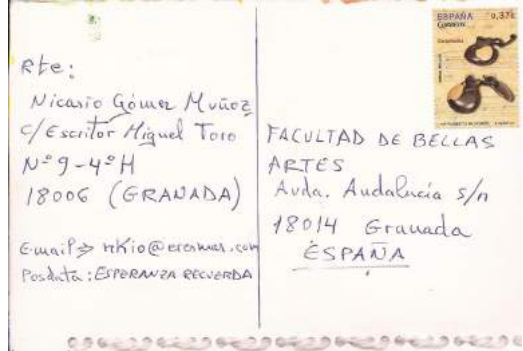 Rte:
Nicasio Gómez Muñoz
C/ Escritor Miguel Toro
Nº 9-4º H
18006 (GRANADA)
E-mail → nkio@erasmus.com
Posdata: ESPERANZA RECUERDA
ESPAÑA 0,37€
CORREOS
FACULTAD DE BELLAS
ARTES
Avda. Andalucía s/n
18014 Granada
ESPAÑA